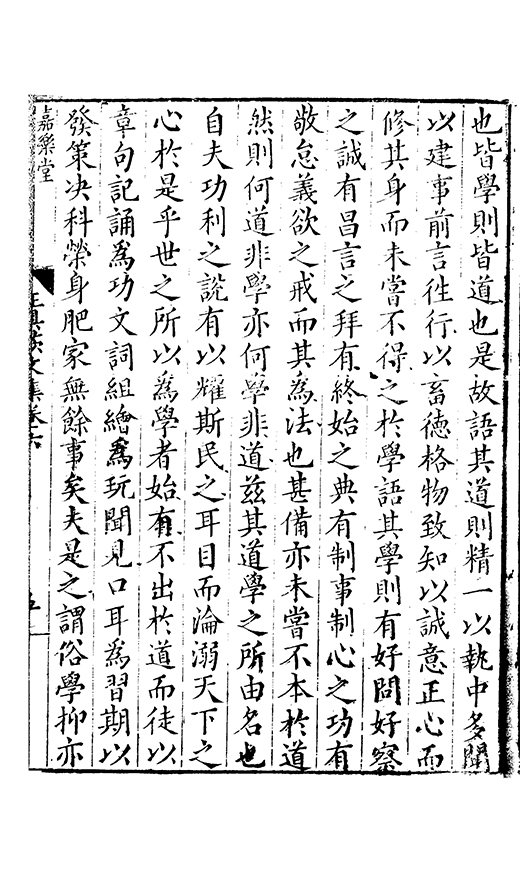 也皆學則皆道也是故語其道則精一以執中多聞
以建事前言徃行以畜德格物致知以誠意正心而
修其身而未嘗不得之於學語其學則有好問好察
之誠有昌言之拜有終始之典有制事制心之功有
敬怠義欲之戒而其為法也甚備亦未嘗不本於道
然則何道非學亦何學非道兹其道學之所由名也
自夫功利之說有以耀斯民之耳目而淪溺天下之
心於是乎世之所以為學者始有不出於道而徒以
章句記誦為功文詞組繪為玩聞見口耳為習期以
發策决科榮身肥家無餘事矣夫是之謂俗學抑亦
文集卷六
五
嘉樂堂